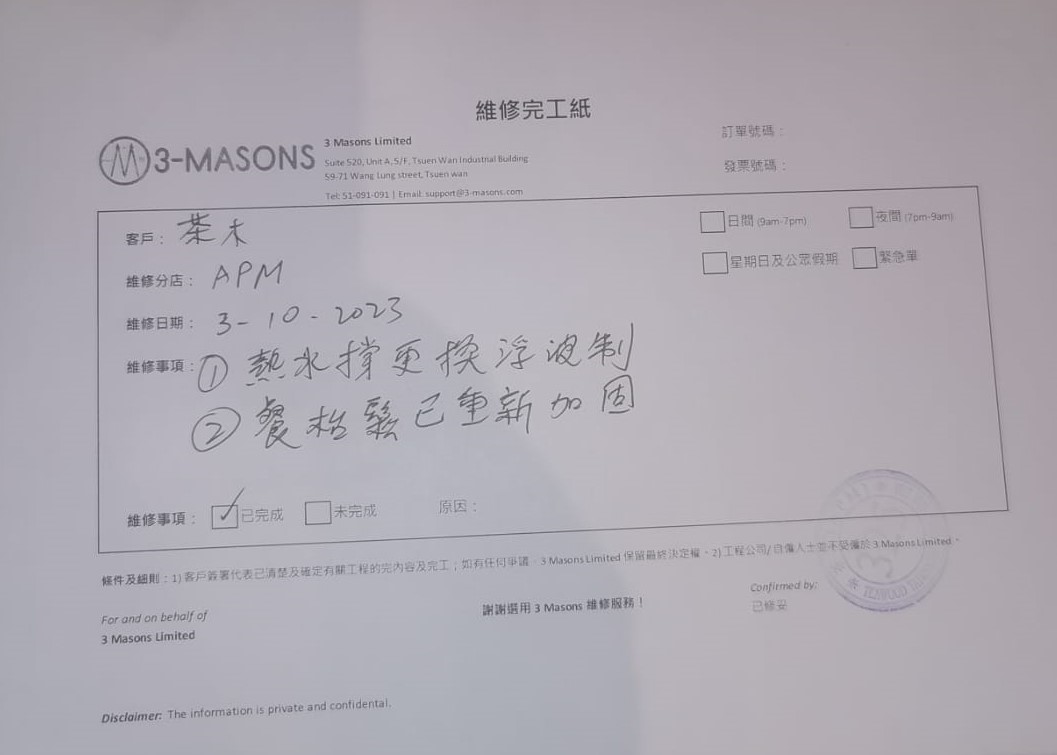 維修完工紙
訂單號碼：
發票號碼：
3-MASONS
3 Masons Limited
Suite 520, Unit A, 5/F, Tsuen Wan Industrial Building
59-71 Wang Lung street, Tsuen wan
Tel: 51-091-091 | Email: support@3-masons.com
客戶：茶木
日間 (9am-7pm) 夜間 (7pm-9am)
維修分店：APM
星期日及公眾假期 緊急單
維修日期：3-10-2023
維修事項：① 熱水撐更換浮波制
② 餐枱鬆已重新加固
維修事項：✓ 已完成 未完成 原因：
條件及細則：1) 客戶簽署代表已清楚及確定有關工程的完內容及完工；如有任何爭議，3 Masons Limited 保留最終決定權。2) 工程公司/自僱人士並不受僱於 3 Masons Limited。
For and on behalf of
3 Masons Limited
謝謝選用 3 Masons 維修服務！
Confirmed by:
已修妥
TEAWOOD
Disclaimer: The information is private and confidental.